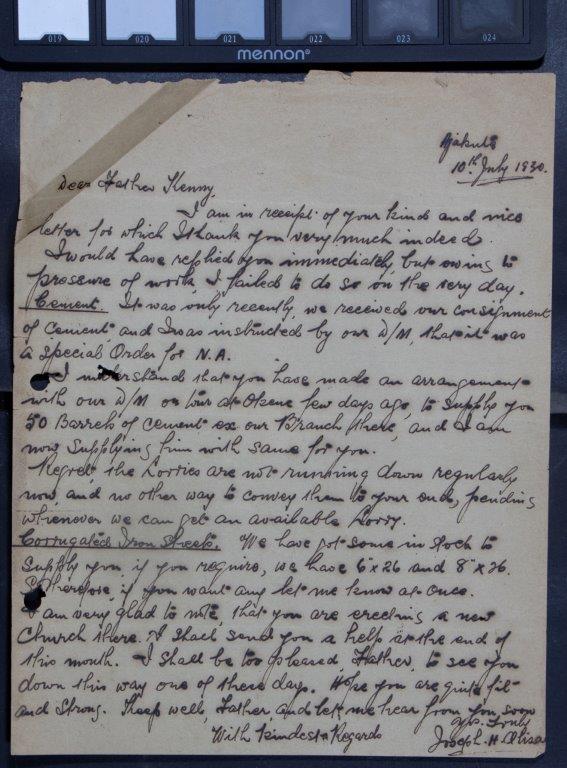 019 020 021 022 023 024
mennon®
Ajakuta
10th July 1930.
Dear Father Kenny,
I am in receipt of your kind and nice
letter for which I thank you very much indeed.
I would have replied you immediately, but owing to
presure of work, I failed to do so on the very day.
Cement. It was only recently, we received our consignment
of cement, and I was instructed by our D/M, that it was
a special Order for N.A.
I understand that you have made an arrangement
with our D/M on tour at Okene few days ago, to supply you
50 Barrels of cement ex our Branch there, and I am
now supplying him with same for you.
Regret, the Lorries are not running down regularly
now, and no other way to convey them to your end, pending
whenever we can get an available Lorry.
Corrugated Iron Sheets. We have got some in stock to
supply you if you require, we have 6 x 26 and 8 x 26.
Therefore, if you want any let me know at once.
I am very glad to note, that you are erecting a new
Church there. I shall send you a help at the end of
this month. I shall be too pleased, Father, to see you
down this way one of these days. Hope you are quite fit
and Strong. Keep well, Father, and let me hear from you soon
With kindest Regards
Yrs. Truly
Joseph. H.